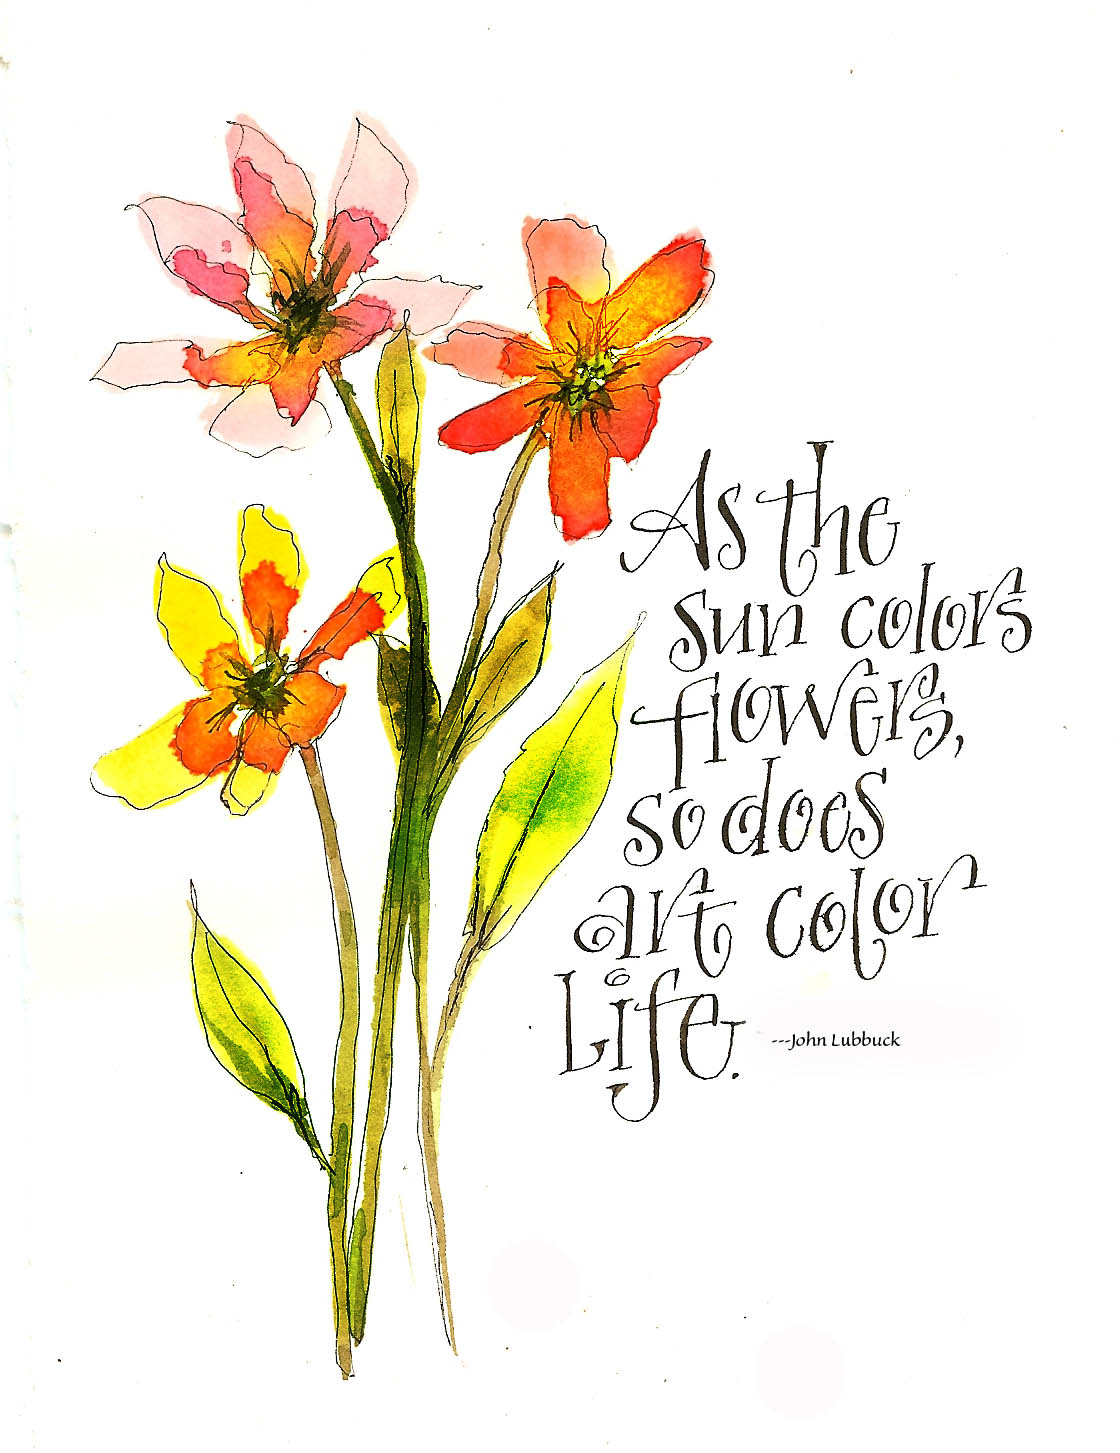 As the
sun colors
flowers,
so does
art color
Life.
---John Lubbuck